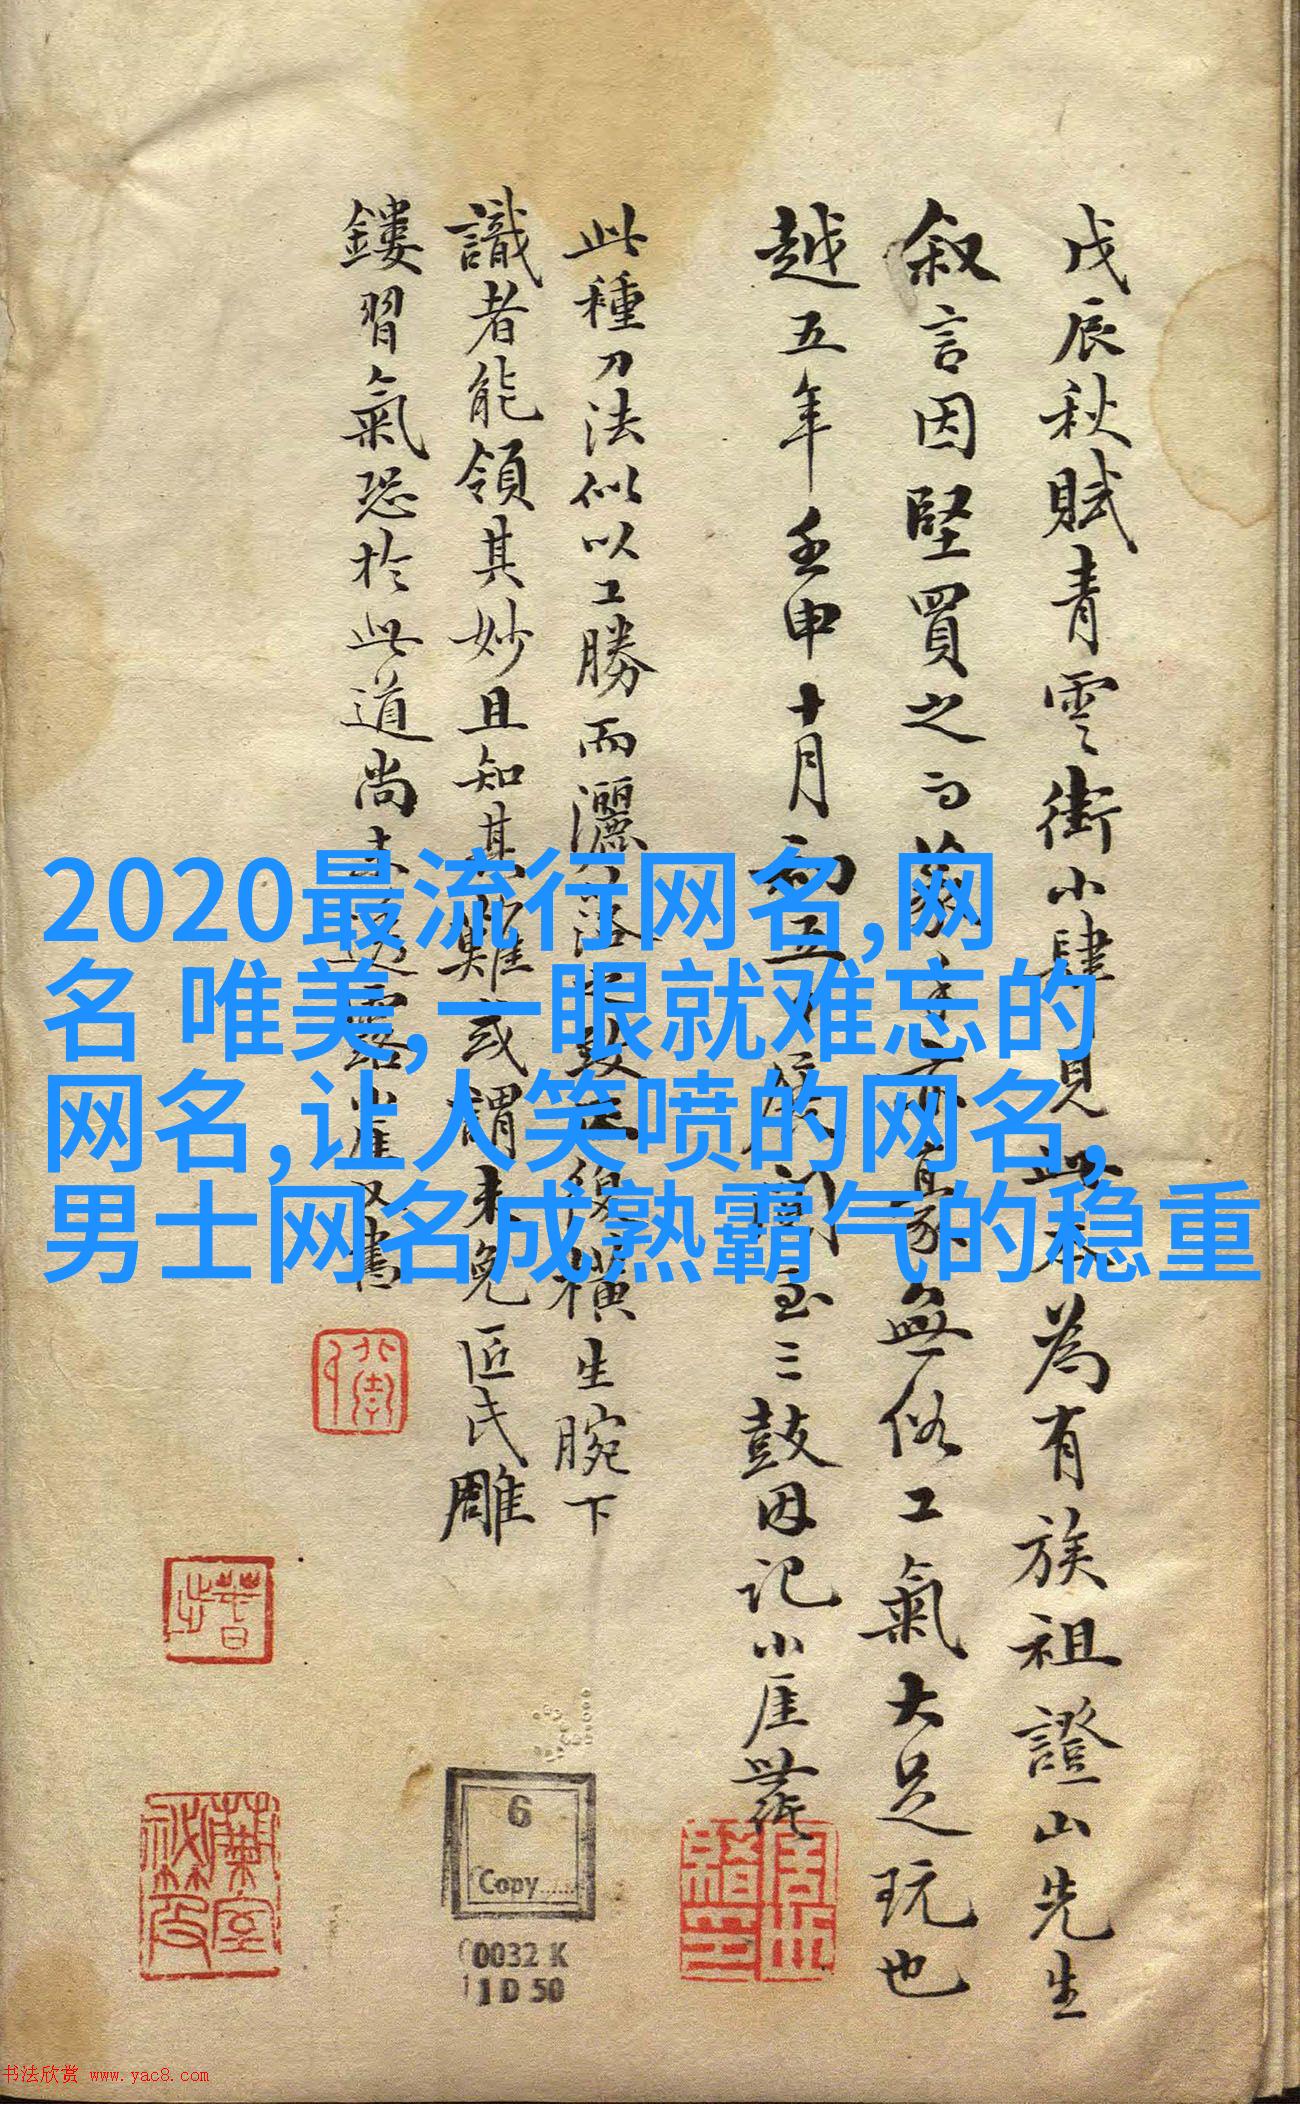 戊辰秋賦青雲街小肆見此本為有族祖證山先生
叙言因堅買之 無俗工氣大足玩也
越五年壬申十月初五 至三鼓因記小厓
此種刀法似以工勝而灑 橫生腕下
識者能領其妙且知其難或謂未免匠氏雕
鏤習氣恐於此道尚未 厓又書
2020最流行网名,网
名 唯美,一眼就难忘的
网名,让人笑喷的网名,
男士网名成熟霸气的稳重
6
Copy
0032 K
1 D 50
书法欣赏 www.yac8.com